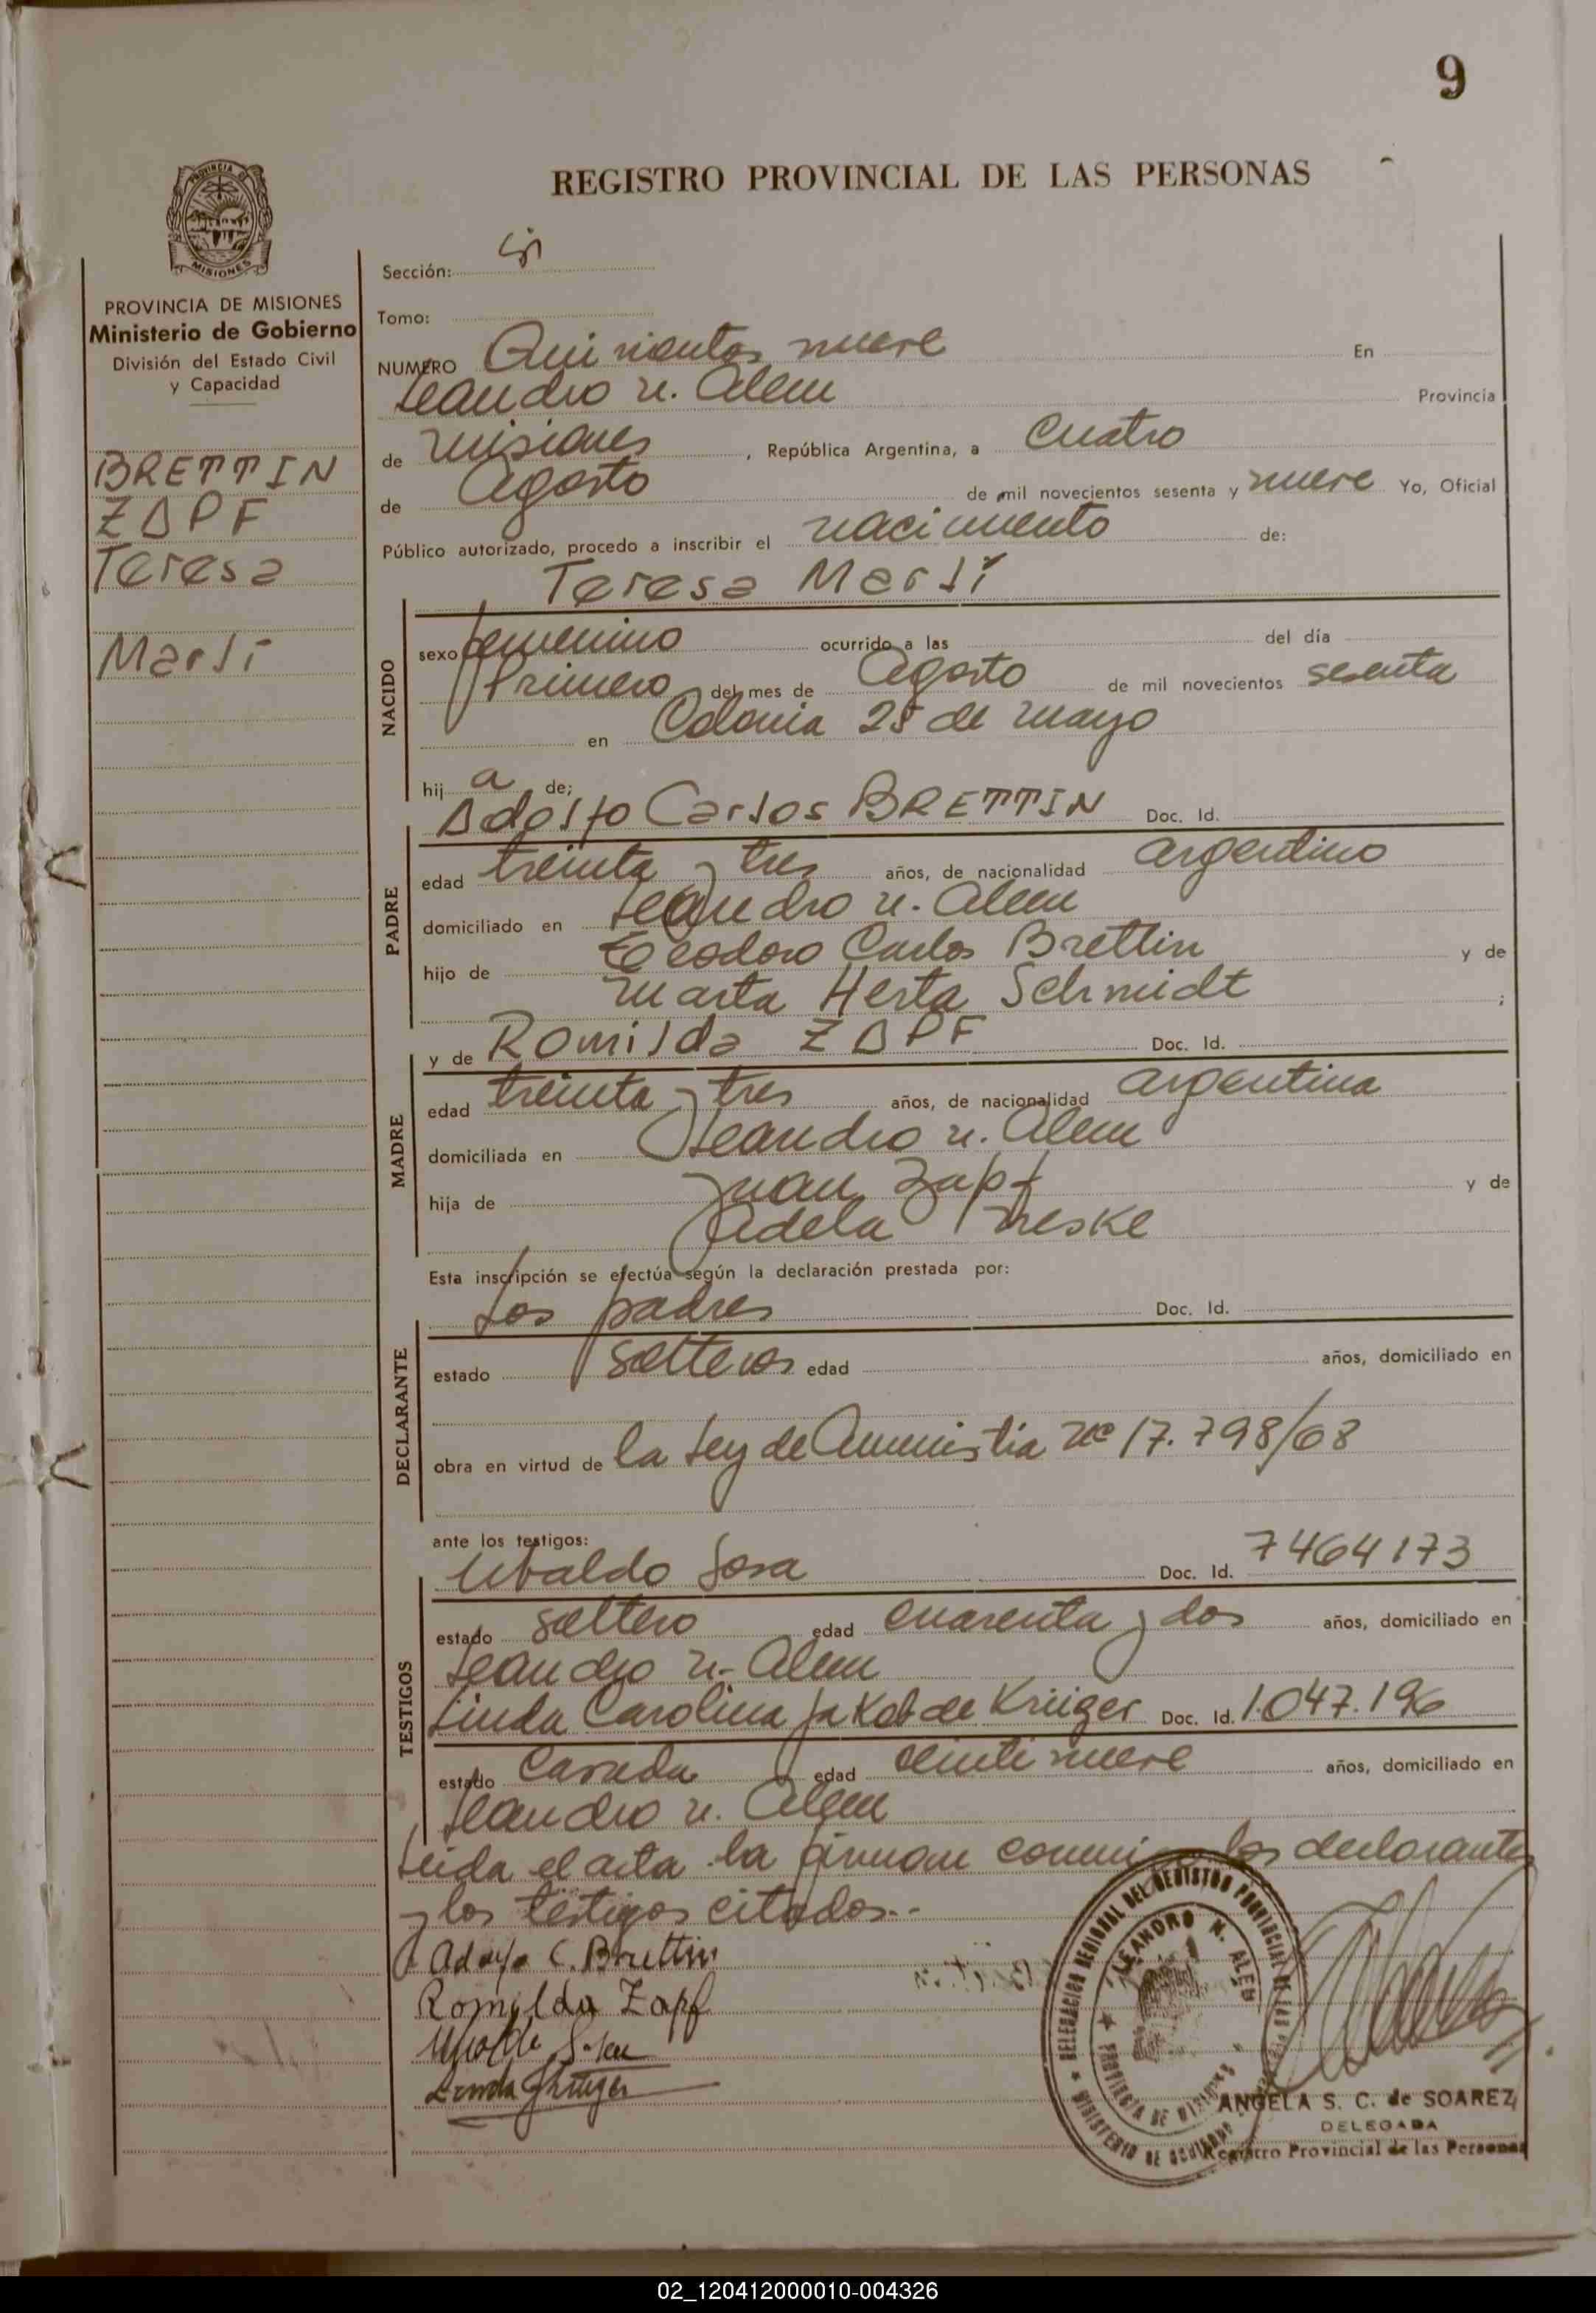 9
REGISTRO PROVINCIAL DE LAS PERSONAS
PROVINCIA DE MISIONES
PROVINCIA DE MISIONES
Ministerio de Gobierno
División del Estado Civil
y Capacidad
BRETTIN
ZAPF
Teresa
Marli
Sección:
Tomo:
NUMERO Quinientos nueve En
Leandro N. Alem Provincia
de Misiones, República Argentina, a Cuatro
de Agosto de mil novecientos sesenta y nueve Yo, Oficial
Público autorizado, procedo a inscribir el nacimiento de:
Teresa Marli
NACIDO
sexo femenino ocurrido a las del día
Primero del mes de Agosto de mil novecientos sesenta
en Colonia 25 de Mayo
hij a de;
Adolfo Carlos BRETTIN Doc. Id.
PADRE
edad treinta y tres años, de nacionalidad argentino
domiciliado en Leandro N. Alem
hijo de Teodoro Carlos Brettin y de
Marta Herta Schmidt ;
y de Romilda ZAPF Doc. Id.
MADRE
edad treinta y tres años, de nacionalidad argentina
domiciliada en Leandro N. Alem
hija de Juan Zapf y de
Adela
Esta inscripción se efectúa según la declaración prestada por:
Los padres Doc. Id.
DECLARANTE
estado solteros edad años, domiciliado en
obra en virtud de la Ley de Amnistia Nº 17.798/68
ante los testigos:
Ubaldo Sosa Doc. Id. 7464173
TESTIGOS
estado soltero edad cuarenta y dos años, domiciliado en
Leandro N. Alem
Linda Carolina Jakob de Krüiger Doc. Id. 1.047.196
estado Casada edad veintinueve años, domiciliado en
Leandro N. Alem
Leida el acta la firman conmigo los declarantes
y los testigos citados.-
Adolfo C. Brettin
Romilda Zapf
Ubaldo Sosa
Linda Krüger
DELEGACION REGIONAL DEL REGISTRO PROVINCIAL DE LAS
LEANDRO N. ALEM
PROVINCIA DE MISIONES
MINISTERIO DE GOBIERNO
ANGELA S. C. de SOAREZ
DELEGADA
Registro Provincial de las Personas
02_120412000010-004326